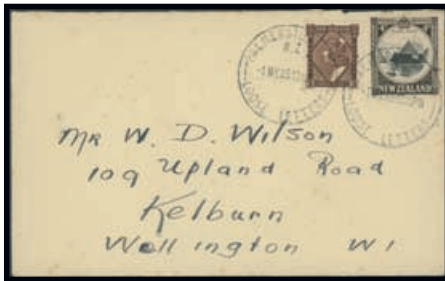 N.Z.
NEW ZEALAND
LETTERS
Mr W. D. Wilson
109 Upland Road
Kelburn
Wellington W1